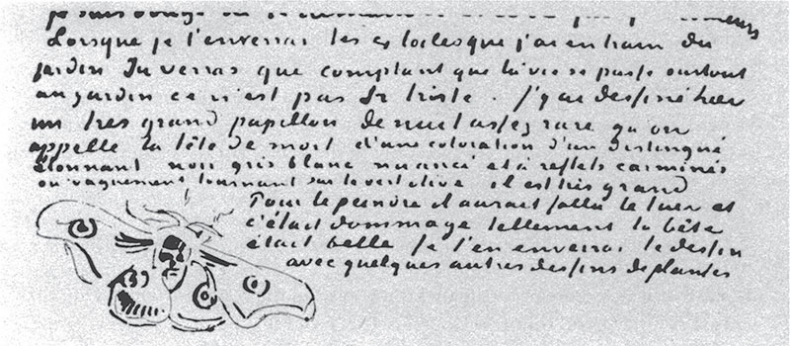 Lorsque je t'enverrai les 4 toiles que j'ai en train du
jardin Tu verras que comptant que la vie se passe surtout
au jardin ce n'est pas si triste . J'y ai dessiné hier
un tres grand papillon de nuit assez rare qu'on
appelle la tête de mort d'une coloration d'un distingué
étonnant noir gris blanc nuancé et à reflets carminés
ou vaguement tournant sur le vert olive il est très grand
Pour le peindre il aurait fallu le tuer et
c'était dommage tellement la bête
était belle Je t'en enverrai le dessin
avec quelques autres dessins de plantes